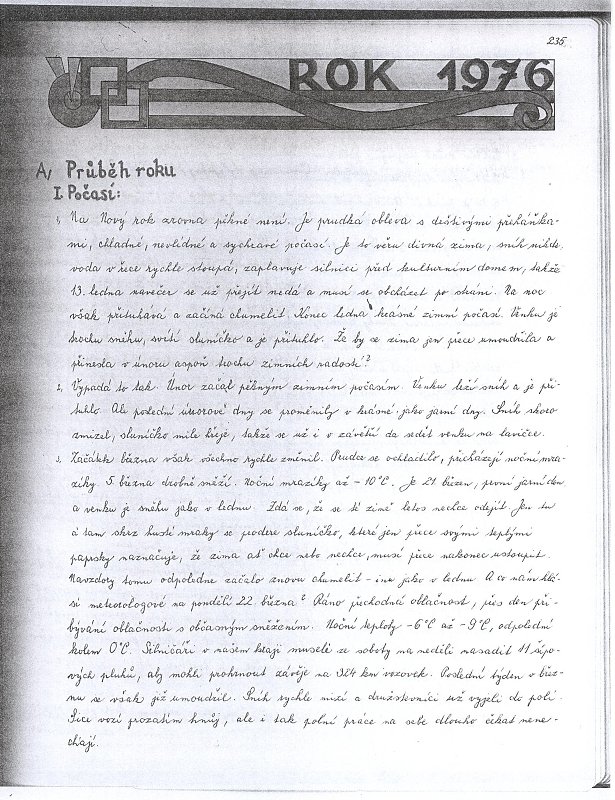 235
ROK 1976
A, Průběh roku
I. Počasí:
1, Na Nový rok zrovna pěkně není. Je prudká obleva s deštivými přeháňka-
mi, chladné, nevlídné a sychravé počasí. Je to věru divná zima, sníh nikde,
voda v řece rychle stoupá, zaplavuje silnici před kulturním domem, takže
13. ledna navečer se už přejít nedá a musí se obcházet po stráni. Na noc
však přituhává a začíná chumelit. Konec ledna krásné zimní počasí. Venku je
trochu sněhu, svítí sluníčko a je přituhlo. Že by se zima jen přece umoudřila a
přinesla v únoru aspoň trochu zimních radostí?
2, Vypadá to tak. Únor začal pěkným zimním počasím. Venku leží sníh a je při-
tuhlo. Ale poslední únorové dny se proměnily v krásné jako jarní dny. Sníh skoro
zmizel, sluníčko mile hřeje, takže se už i v závětří dá sedět venku na lavičce.
3, Začátek března však všechno rychle změnil. Prudce se ochladilo, přicházejí noční mra-
zíky. 5. března drobně sněží. Noční mrazíky až -10°C. Je 21. březen, první jarní den
a venku je sněhu jako v lednu. Zdá se, že se té zimě letos nechce odejít. Jen tu
a tam skrz husté mraky se prodere sluníčko, které jen přece svými teplými
paprsky naznačuje, že zima ať chce nebo nechce, musí přece nakonec ustoupit.
Navzdory tomu odpoledne začalo znovu chumelit - inu jako v lednu. A co nám hlá-
sí meteorologové na pondělí 22. března? Ráno přechodně oblačnost, přes den při-
bývání oblačnosti s občasným sněžením. Noční teploty -6°C až -9°C, odpolední
kolem 0°C. Silničáři v našem kraji museli ze soboty na neděli nasadit 11 šípo-
vých pluhů, aby mohli prohrnout závěje na 324 km vozovek. Poslední týden v břez-
nu se však již umoudřil. Sníh rychle mizí a družstevníci už vyjeli do polí.
Sice vozí prozatím hnůj, ale i tak polní práce na sebe dlouho čekat nene-
chají.